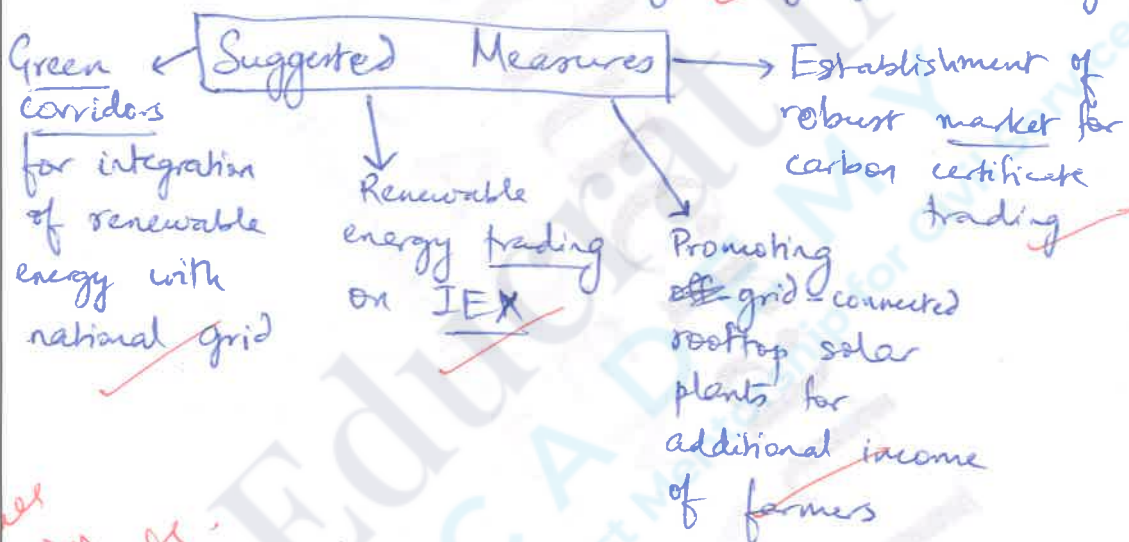 Suggested Measures
Green
corridors
for integration
of renewable
energy with
national grid
Renewable
energy trading
on IEX
Promoting
grid-connected
rooftop solar
plants for
additional income
of farmers
Establishment of
robust market for
carbon certificate
trading
Educrat
ACADEMY
for Civil Service